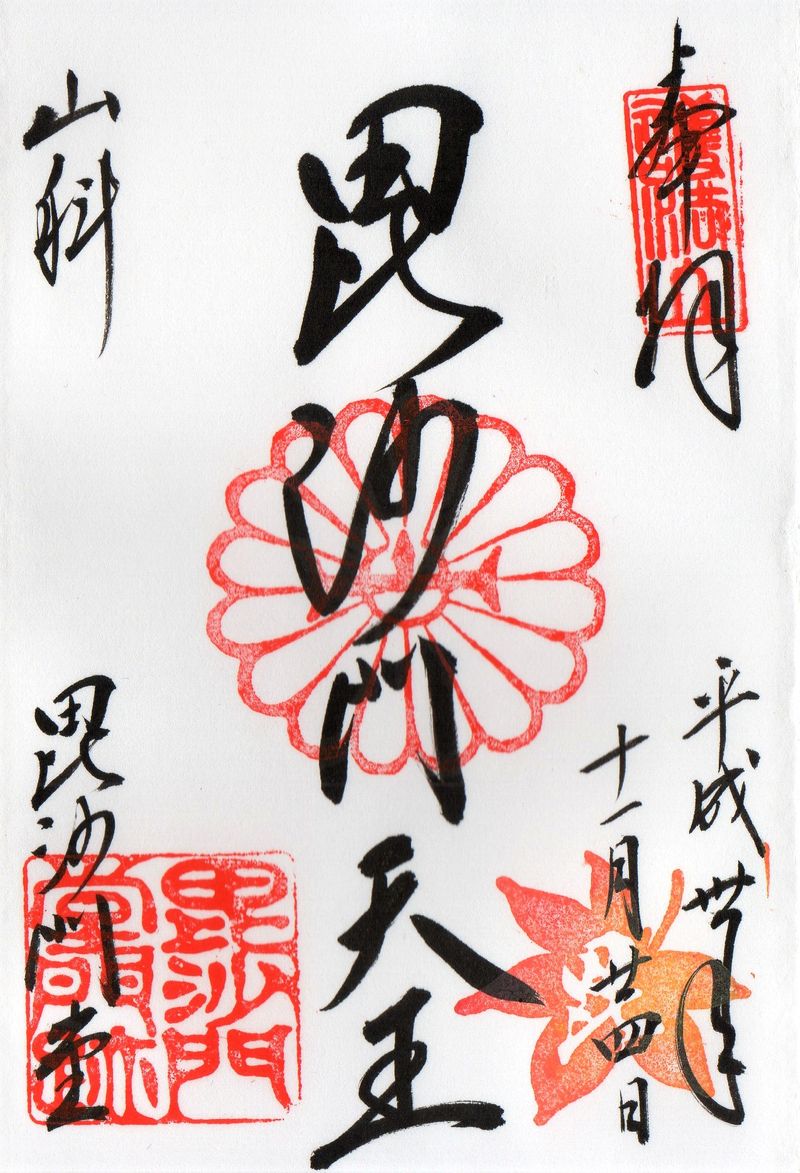 奉拝
平成卅年
十一月廿四日
毘沙門天王
山科
毘沙門堂
毘沙門
堂門跡